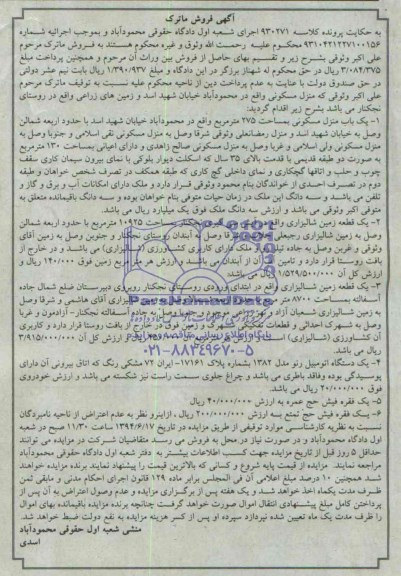 آگهی فروش ماترک
به حکایت پرونده کلاسه ۹۳۰۲۷۱ اجرای شعبه اول دادگاه حقوقی محمودآباد و بموجب اجرائیه شماره
۹۳۱۰۴۲۱۲۲۷۱۰۰۱۵۶ محکوم علیه رحمت اله وثوق و غیره محکوم هستند به فروش ماترک مرحوم
علی اکبر وثوقی بشرح زیر و تقسیم بهای حاصل از فروش بین وراث آن مرحوم و همچنین پرداخت مبلغ
۳/۰۸۴/۳۷۵ ریال در حق محکوم له شهناز برزگر در این دادگاه و مبلغ ۱/۳۹۰/۹۳۷ ریال بابت نیم عشر دولتی
در حق صندوق دولت با عنایت به عدم پرداخت دین از ناحیه محکوم علیه نسبت به توقیف ماترک مرحوم
علی اکبر وثوقی که منزل مسکونی واقع در محمودآباد خیابان شهید اسد و زمین های زراعی واقع در روستای
نجکنار می باشد بشرح زیر اقدام گردید:
۱- یک باب منزل مسکونی بمساحت ۲۷۵ مترمربع واقع در محمودآباد خیابان شهید اسد با حدود اربعه شمالن
وصل به خیابان شهید اسد و منزل رمضانعلی وثوقی شرقا وصل به منزل مسکونی نقی اسلامی و جنوبا وصل به
منزل مسکونی ولی اسلامی و غربا وصل به منزل مسکونی صالح زاهدی و دارای اعیانی بمساحت ۱۳۰ مترمربع
به صورت دو طبقه قدیمی با قدمت بالای ۳۵ سال که اسکلت دیوار بلوکی با نمای بیرون سیمان کاری سقف
چوب و حلب و اتاقها گچکاری و نمای داخلی گچ کاری که طبقه همکف در تصرف شخص خواهان و طبقه
دوم در تصرف احدی از خواندگان بنام محمود وثوقی قرار دارد و ملک دارای امکانات آب و برق و گاز و
تلفن می باشد و سه دانگ این ملک در زمان حیات متوفی بنام خواهان بوده و سه دانگ باقیمانده متعلق به
مرحوم علی اکبر وثوقی می باشد و ارزش سه دانگ ملک فوق یک میلیارد ریال می باشد.
۲- یک قطعه زمین شالیزاری واقع نجکنار بمساحت ۱۰۹۲۵ مترمربع با حدود اربعه شمالن
وصل به زمین شالیزاری شرقا وصل به آبندان روستای نجکنار و جنوبن وصل به زمین آقای
وثوقی و غربن وصل به جاده ملک دارای کاربری کشاورزی (شالیزاری) می باشند و در خارج از
بافت روستا قرار دارد و تامین آب آن از آبندان می باشد و ارزش هر مترمربع زمین فوق ۱۴۰/۰۰۰ ریال و
ارزش کل آن ۱/۵۲۹/۵۰۰/۰۰۰ ریال می باشد
۳- یک قطعه زمین شالیزاری واقع در ابتدای ورودی روستای نجکنار روبروی دبیرستان ضلع شمال جاده
آسفالته بمساحت ۸۷۰۰ متر شالیزاری آقای هاشمی و شرقا وصل
به زمین شالیزاری شعبان آزاد و وصل به جاده آسفالته نجکنار- آزادمون و غربا
وصل به شهرک احداثی و قطعات تفکیکی شهرک و زمین فوق در خارج از بافت روستا قرار دارد و کاربری
آن کشاورزی (شالیزاری) ارزش کل آن ۳/۹۱۵/۰۰۰/۰۰۰
ریال می باشد.
۴- یک دستگاه اتومبیل رنو مدل ۱۳۸۲ بشماره پلاک ۱۷۱۶۱- ایران ۷۲ مشکی رنگ که اتاق بیرونی آن دارای
پوسیدگی بوده و فاقد باطری می باشد و چراغ جلوی سمت راست نیز شکسته می باشد و ارزش خودروی
فوق ۲۰/۰۰۰/۰۰۰ ریال می باشد.
۵- یک فقره فیش حج عمره به ارزش ۴۰/۰۰۰/۰۰۰ ریال
۶- یک فقره فیش حج تمتع به ارزش ۲۰۰/۰۰۰/۰۰۰ ریال ، ازاینرو نظر به عدم اعتراض از ناحیه نامبردگان
نسبت به نظریه کارشناسی موارد توقیفی از طریق مزایده در تاریخ ۱۳۹۴/۶/۱۷ ساعت ۱۱/۳۰ صبح در شعبه
اول دادگاه محمودآباد و در صورت نیاز در محل به فروش می رسد متقاضیان شرکت در مزایده می توانند
حداقل ۵ روز قبل از تاریخ مزایده جهت کسب اطلاعات بیشتر به دفتر شعبه اول دادگاه حقوقی محمودآباد
مراجعه نمایند. مزایده از قیمت پایه شروع و کسانی که بالاترین قیمت را پیشنهاد نمایند برنده مزایده خواهند
شد همچنین ۱۰ درصد مبلغ اعلامی آن فی المجلس برابر ماده ۱۲۹ قانون اجرای احکام مدنی و مابقی ثمن
ظرف مدت یکماه اخذ خواهد شد و یک هفته پس از برگزاری مزایده و عدم وصول اعتراض به آن پس از
پرداختن کامل مبلغ پیشنهادی انتقال اموال صورت خواهد گرفت چنانچه برنده مزایده باقیمانده بهای اموال
را ظرف مدت یک ماه تعیین شده نپردازد سپرده او پس از کسر هزینه مزایده به نفع دولت ضبط خواهد شد.
منشی شعبه اول حقوقی محمودآباد
اسدی
ParsNamadData
۰۲۱-۸۸۳۴۹۶۷۰-۵